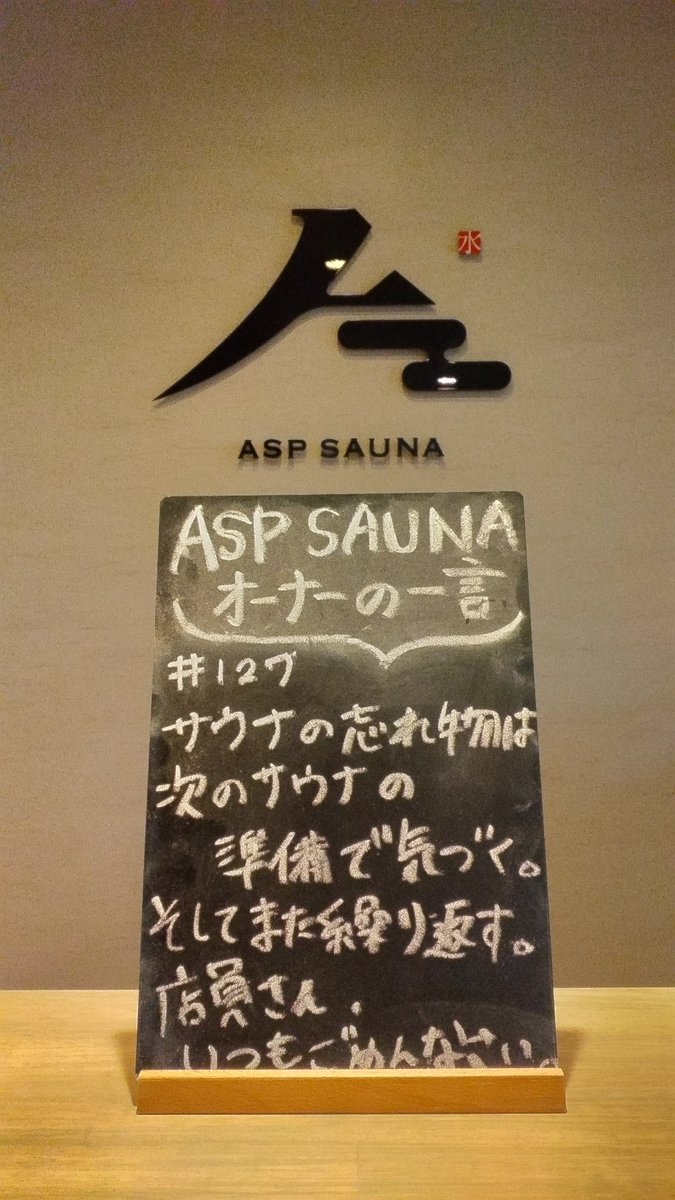 水
ASP SAUNA
ASP SAUNA
オーナーの一言
#127
サウナの忘れ物は
次のサウナの
準備で気づく。
そしてまた繰り返す。
店員さん、
いつもごめんなさい。